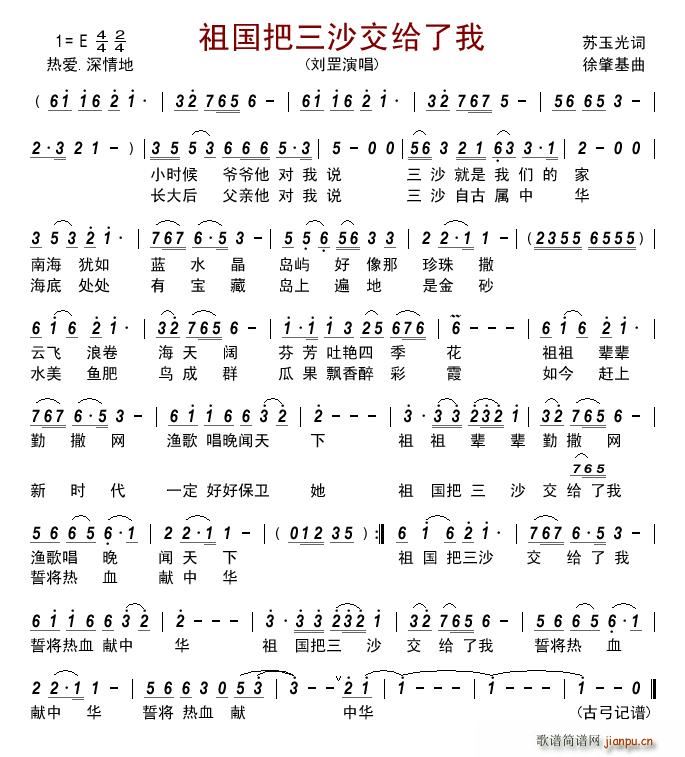 祖国把三沙交给了我
1= E 4/4 2/4
苏玉光词
热爱.深情地
(刘罡演唱)
徐肇基曲
( 6 1 1 6 2 1 · | 3 2 7 6 5 3 - | 6 1 1 6 2 1 · | 3 2 7 6 5 3 - | 5 6 6 5 3 |
2 · 3 2 1 - ) | 3 5 5 3 6 6 6 5 · 3 | 5 - 0 0 | 5 6 3 2 1 6 3 3 · 1 | 2 - 0 0 |
小时候 爷爷他 对 我 说 三 沙 就是 我 们 的 家
长大后 父亲他 对 我 说 三 沙 自古 属 中 华
3 5 3 2 1 · | 7 6 7 6 · 5 3 - | 5 5 6 5 6 3 3 | 2 2 2 · 1 1 - | ( 2 3 5 5 6 5 5 5 ) |
南海 犹如 蓝 水 晶 岛屿 好 像那 珍珠 撒
海底 处处 有 宝 藏 岛上 遍 地 是金 砂
6 1 6 2 1 · | 3 2 7 6 5 6 - | 1 · 1 1 3 2 5 6 7 6 | 6 - - - | 1 6 3 2 1 · |
云飞 浪卷 海 天 阔 芬 芳 吐艳四 季 花 祖祖 辈辈
水美 鱼肥 鸟 成 群 瓜 果 飘香醉 彩 霞 如今 赶上
7 6 7 6 · 5 3 - | 6 1 1 6 6 3 2 | 2 - - - | 3 · 3 3 2 3 2 1 | 3 2 7 6 5 3 - |
勤 撒 网 渔歌 唱晚闻天 下 祖 祖 辈 辈 勤 撒 网
7 6 5
新 时 代 一定 好好保卫 她 祖 国把 三 沙 交 给 了我
5 6 6 5 6 · 1 | 2 2 · 1 1 - | ( 0 1 2 3 5 ) :‖ 6 1 6 2 1 · | 7 6 7 6 · 5 3 - |
渔歌唱 晚 闻 天 下 祖 国 把三沙 交 给 了 我
誓将热 血 献 中 华
6 1 1 6 6 3 2 | 2 - - - | 3 · 3 3 2 3 2 1 | 3 2 7 6 5 3 - | 5 6 6 5 6 · 1 |
誓将热血 献中 华 祖 国把 三 沙 交 给 了我 誓将热 血
2 2 · 1 1 - | 5 6 6 6 3 0 5 3 | 3 - - 2 1 | 1 - - - | 1 - - - | 1 - 0 0 ‖
献中 华 誓将 热血 献 中华 (古弓记谱)
歌谱简谱网
jianpu.cn